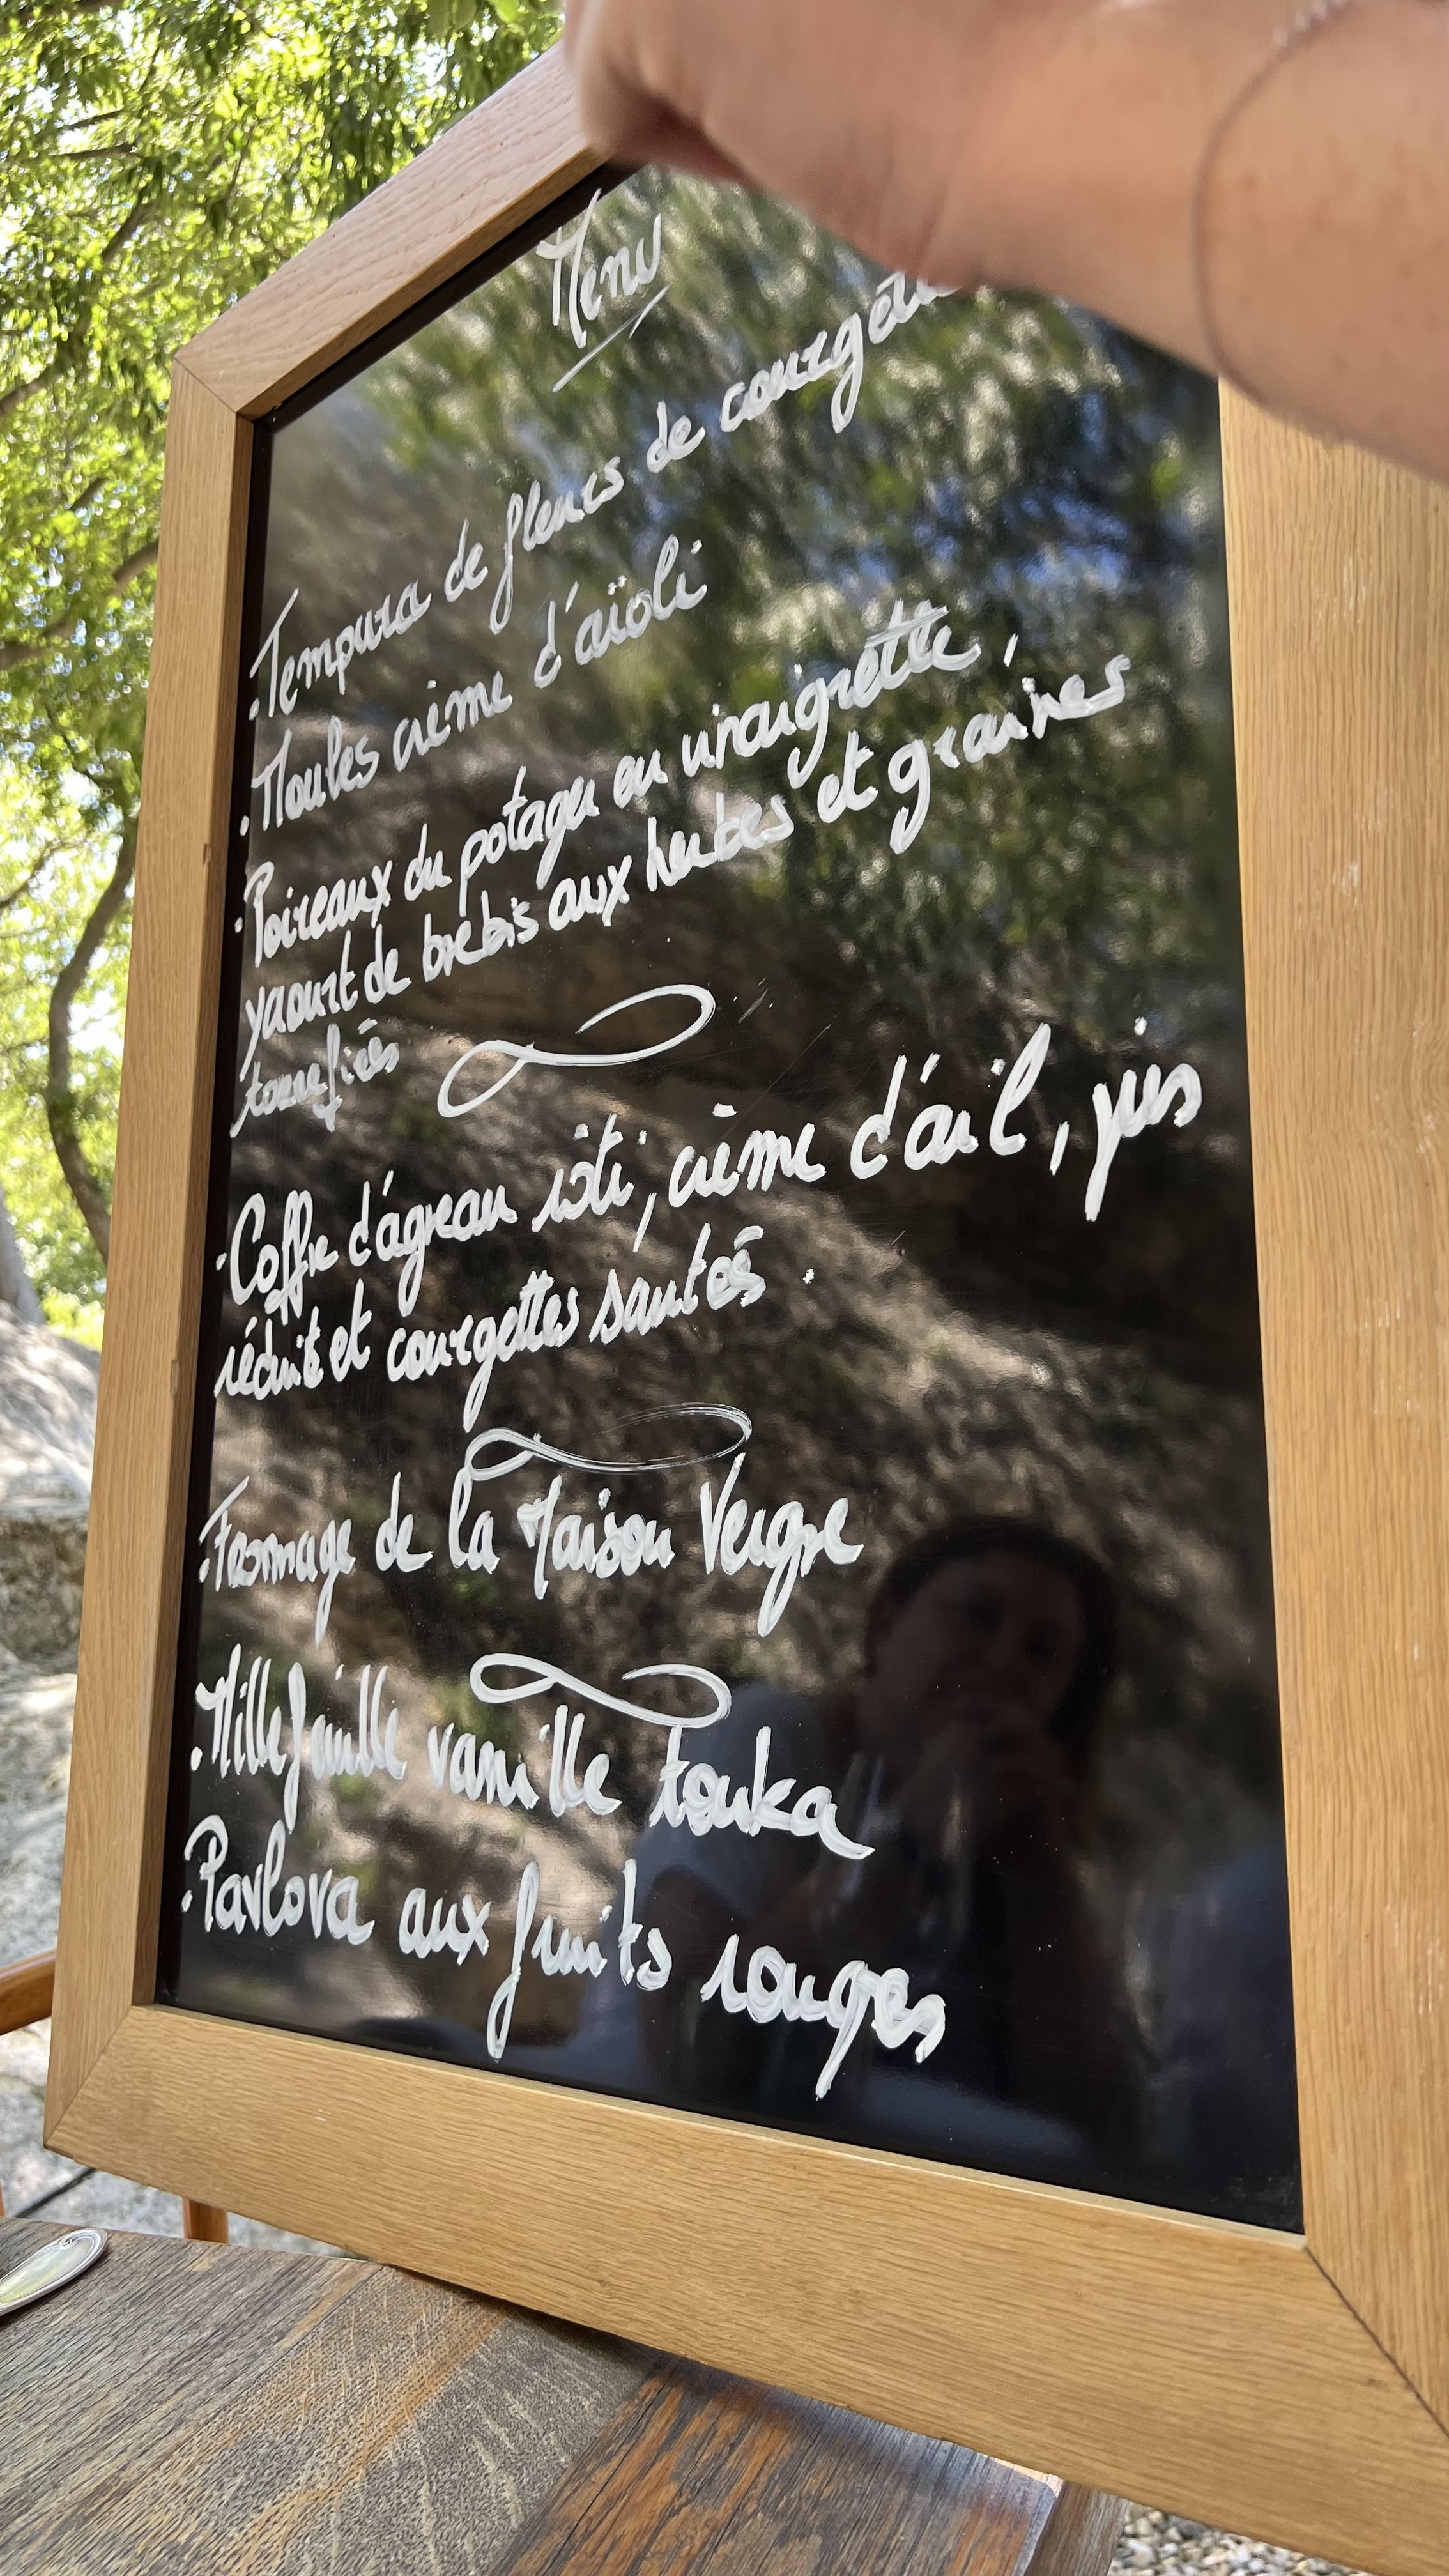 Menu
· Tempura de fleurs de courgette
· Moules crème d'aïoli
· Poireaux du potager en vinaigrette,
yaourt de brebis aux herbes et graines
torrefiées
· Coffre d'agneau rôti, crème d'ail, jus
réduit et courgettes sautés.
· Fromage de la Maison Vergne
· Millefeuille vanille tonka
· Pavlova aux fruits rouges